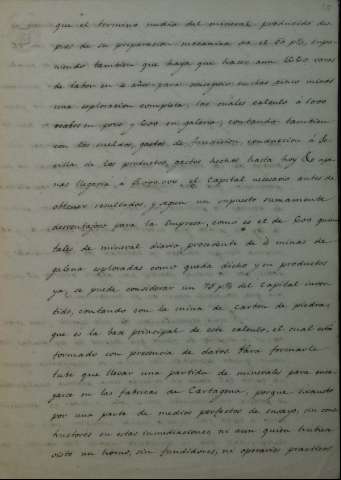 que el termino medio del mineral producido des
pues de su preparacion mecanica sea el 60 p%, supo
niendo tambien que haya que hacer aun varas
de labor en 2 años para conseguir en las cinco minas
una esploracion completa, las cuales calculo á 1000
reales en pozo y 600 en galeria; contando tambien
con los sueldos, gastos de fundicion conduccion á Se
villa de los productos, gastos hechos hasta hoy &c ape
nas llegaria á el Capital necesario antes de
obtener resultados, y segun un supuesto sumamente
desventajoso para la Empresa, como es el de 600 quin
tales de mineral diario procedente de 5 minas de
galena esploradas como queda dicho y en productos
ya, se puede considerar un 75 p% del Capital inver
tido, contando con la mina de carbon de piedra,
que es la base principal de este calculo, el cual está
formado con presencia de datos. Para formarle
tube que llevar una partida de minerales para ensa
yarse en las fabricas de Cartagena, porque careciendo
por una parte de medios perfectos de ensayo, sin cons
tructores en estas inmediaciones, ni aun quien hubiera
visto un horno, sin fundidores, ni operarios practicos